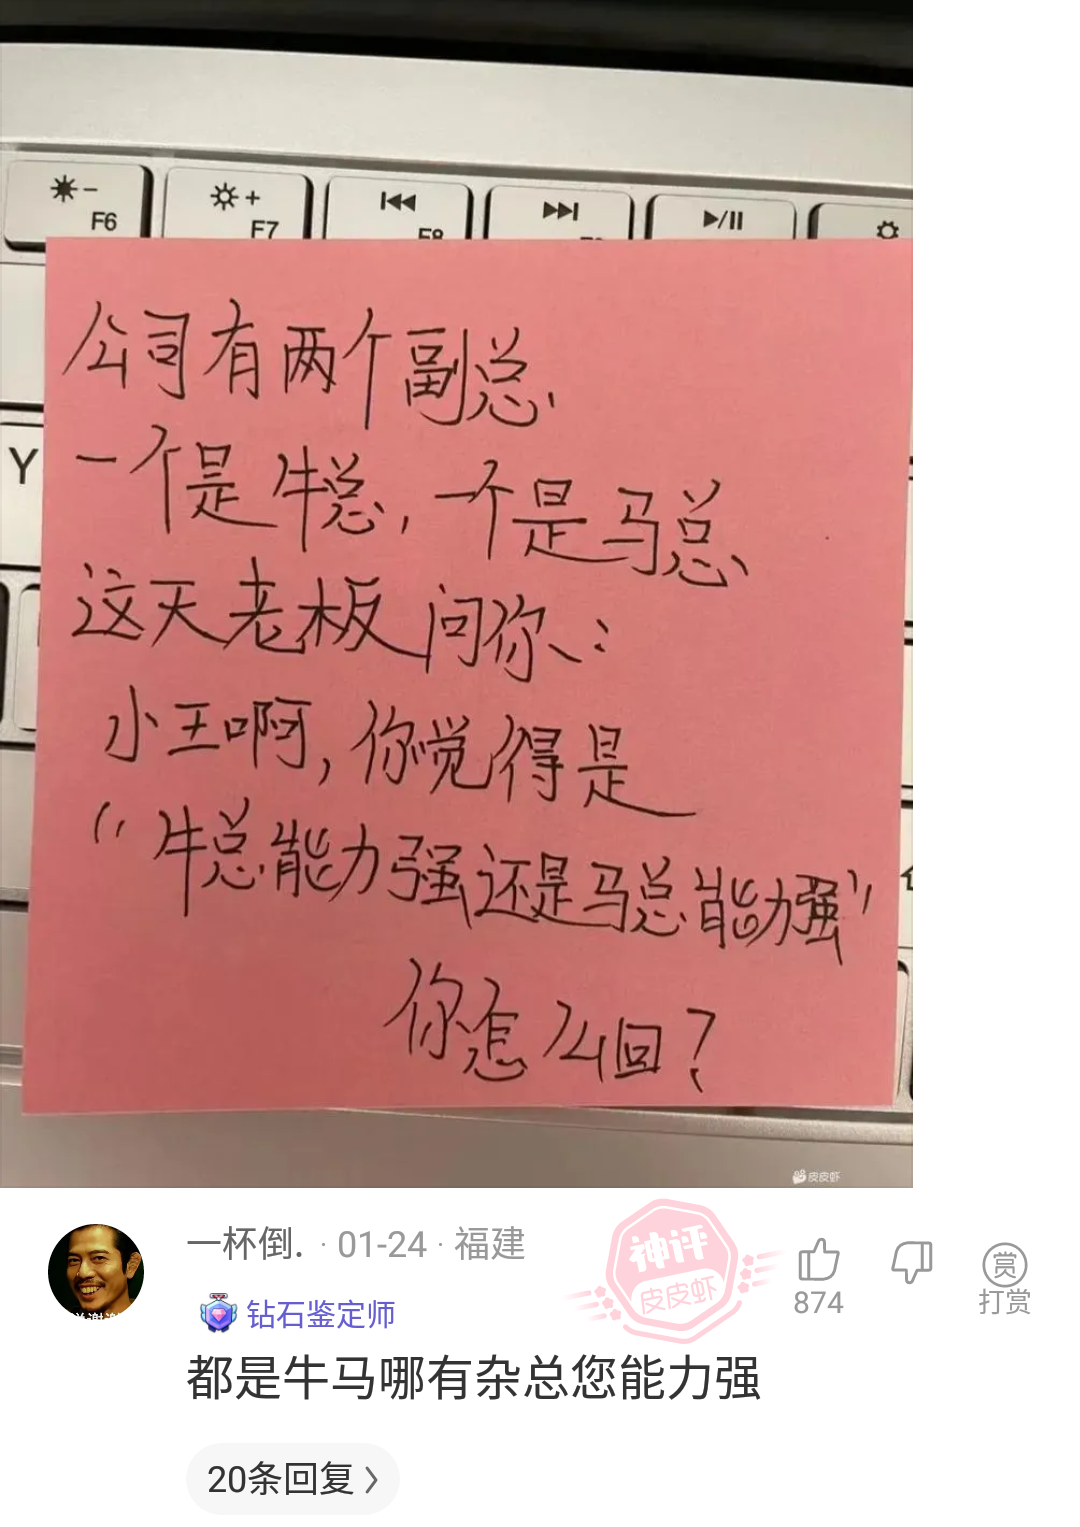 F6
F7
F8
Y
公司有两个副总
一个是牛总,一个是马总
这天老板问你:
小王啊,你觉得是
“牛总能力强还是马总能力强”
你怎么回?
皮皮虾
一杯倒. · 01-24 · 福建
神评
皮皮虾
874
赏
打赏
钻石鉴定师
都是牛马哪有杂总您能力强
20条回复